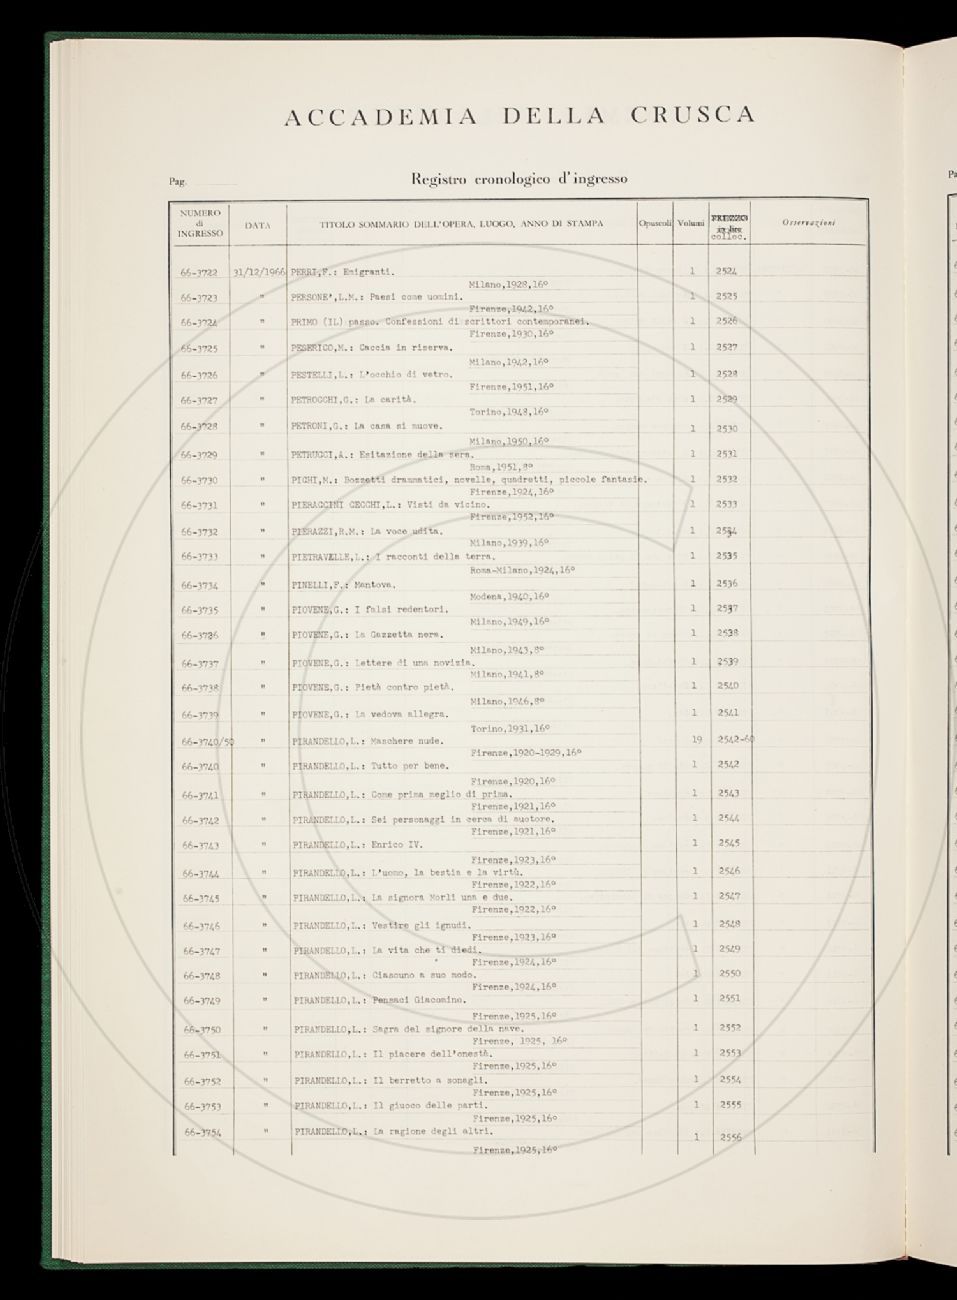 ACCADEMIA DELLA CRUSCA
Pag.
Registro cronologico d'ingresso
NUMERO di INGRESSO DATA TITOLO SOMMARIO DELL'OPERA, LUOGO, ANNO DI STAMPA Opuscoli Volumi PREZZO in lire colloc. Osservazioni
66-3722 31/12/1966 PERRI,F.: Emigranti. 1 2524
Milano,1928,16º
66-3723 " PERSONE',L.M.: Paesi come uomini. 1 2525
Firenze,1942,16º
66-3724 " PRIMO (IL) passo. Confessioni di scrittori contemporanei. 1 2526
Firenze,1930,16º
66-3725 " PESERICO,M.: Caccia in riserva. 1 2527
Milano,1942,16º
66-3726 " PESTELLI,L.: L'occhio di vetro. 1 2528
Firenze,1951,16º
66-3727 " PETROCCHI,G.: La carità. 1 2529
Torino,1948,16º
66-3728 " PETRONI,G.: La casa si muove. 1 2530
Milano,1950,16º
66-3729 " PETRUCCI,A.: Esitazione della sera. 1 2531
Roma,1951,8º
66-3730 " PICHI,M.: Bozzetti drammatici, novelle, quadretti, piccole fantasie. 1 2532
Firenze,1924,16º
66-3731 " PIERACCINI CECCHI,L.: Visti da vicino. 1 2533
Firenze,1952,16º
66-3732 " PIERAZZI,R.M.: La voce udita. 1 2534
Milano,1939,16º
66-3733 " PIETRAVALLE,L.: I racconti della terra. 1 2535
Roma-Milano,1924,16º
66-3734 " PINELLI,F.: Mantova. 1 2536
Modena,1940,16º
66-3735 " PIOVENE,G.: I falsi redentori. 1 2537
Milano,1949,16º
66-3736 " PIOVENE,G.: La Gazzetta nera. 1 2538
Milano,1943,8º
66-3737 " PIOVENE,G.: Lettere di una novizia. 1 2539
Milano,1941,8º
66-3738 " PIOVENE,G.: Pietà contro pietà. 1 2540
Milano,1946,8º
66-3739 " PIOVENE,G.: La vedova allegra. 1 2541
Torino,1931,16º
66-3740/50 " PIRANDELLO,L.: Maschere nude. 19 2542-60
Firenze,1920-1929,16º
66-3740 " PIRANDELLO,L.: Tutto per bene. 1 2542
Firenze,1920,16º
66-3741 " PIRANDELLO,L.: Come prima meglio di prima. 1 2543
Firenze,1921,16º
66-3742 " PIRANDELLO,L.: Sei personaggi in cerca di auotore. 1 2544
Firenze,1921,16º
66-3743 " PIRANDELLO,L.: Enrico IV. 1 2545
Firenze,1923,16º
66-3744 " PIRANDELLO,L.: L'uomo, la bestia e la virtù. 1 2546
Firenze,1922,16º
66-3745 " PIRANDELLO,L.: La signora Morli una e due. 1 2547
Firenze,1922,16º
66-3746 " PIRANDELLO,L.: Vestire gli ignudi. 1 2548
Firenze,1923,16º
66-3747 " PIRANDELLO,L.: La vita che ti diedi. 1 2549
Firenze,1924,16º
66-3748 " PIRANDELLO,L.: Ciascuno a suo modo. 1 2550
Firenze,1924,16º
66-3749 " PIRANDELLO,L.: Pensaci Giacomino. 1 2551
Firenze,1925,16º
66-3750 " PIRANDELLO,L.: Sagra del signore della nave. 1 2552
Firenze, 1925, 16º
66-3751 " PIRANDELLO,L.: Il piacere dell'onestà. 1 2553
Firenze,1925,16º
66-3752 " PIRANDELLO,L.: Il berretto a sonagli. 1 2554
Firenze,1925,16º
66-3753 " PIRANDELLO,L.: Il giuoco delle parti. 1 2555
Firenze,1925,16º
66-3754 " PIRANDELLO,L.: La ragione degli altri. 1 2556
Firenze,1925,16º